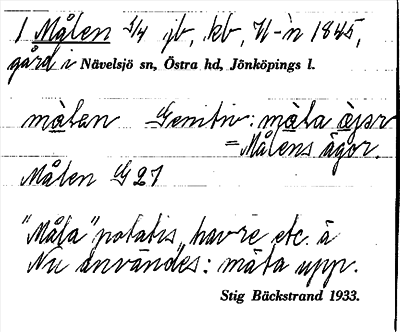 1 Målen 1/4 jb, kb, U-n 1845,
gård i Nävelsjö sn, Östra hd, Jönköpings l.
målen Genitiv: måla åjor
= Målens ägor.
Målen G 27
"Måla" potatis, havre etc. ä
Nu användes: mäta upp.
Stig Bäckstrand 1933.